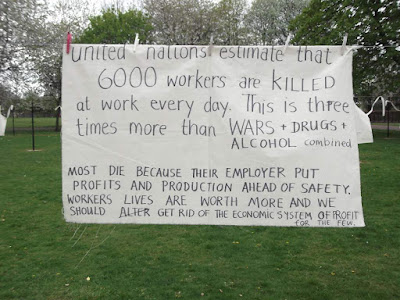 united nations estimate that
6000 workers are KILLED
at work every day. This is three
times more than WARS + DRUGS +
ALCOHOL combined
MOST DIE BECAUSE THEIR EMPLOYER PUT
PROFITS AND PRODUCTION AHEAD OF SAFETY.
WORKERS LIVES ARE WORTH MORE AND WE
SHOULD ALTER GET RID OF THE ECONOMIC SYSTEM OF PROFIT
FOR THE FEW.